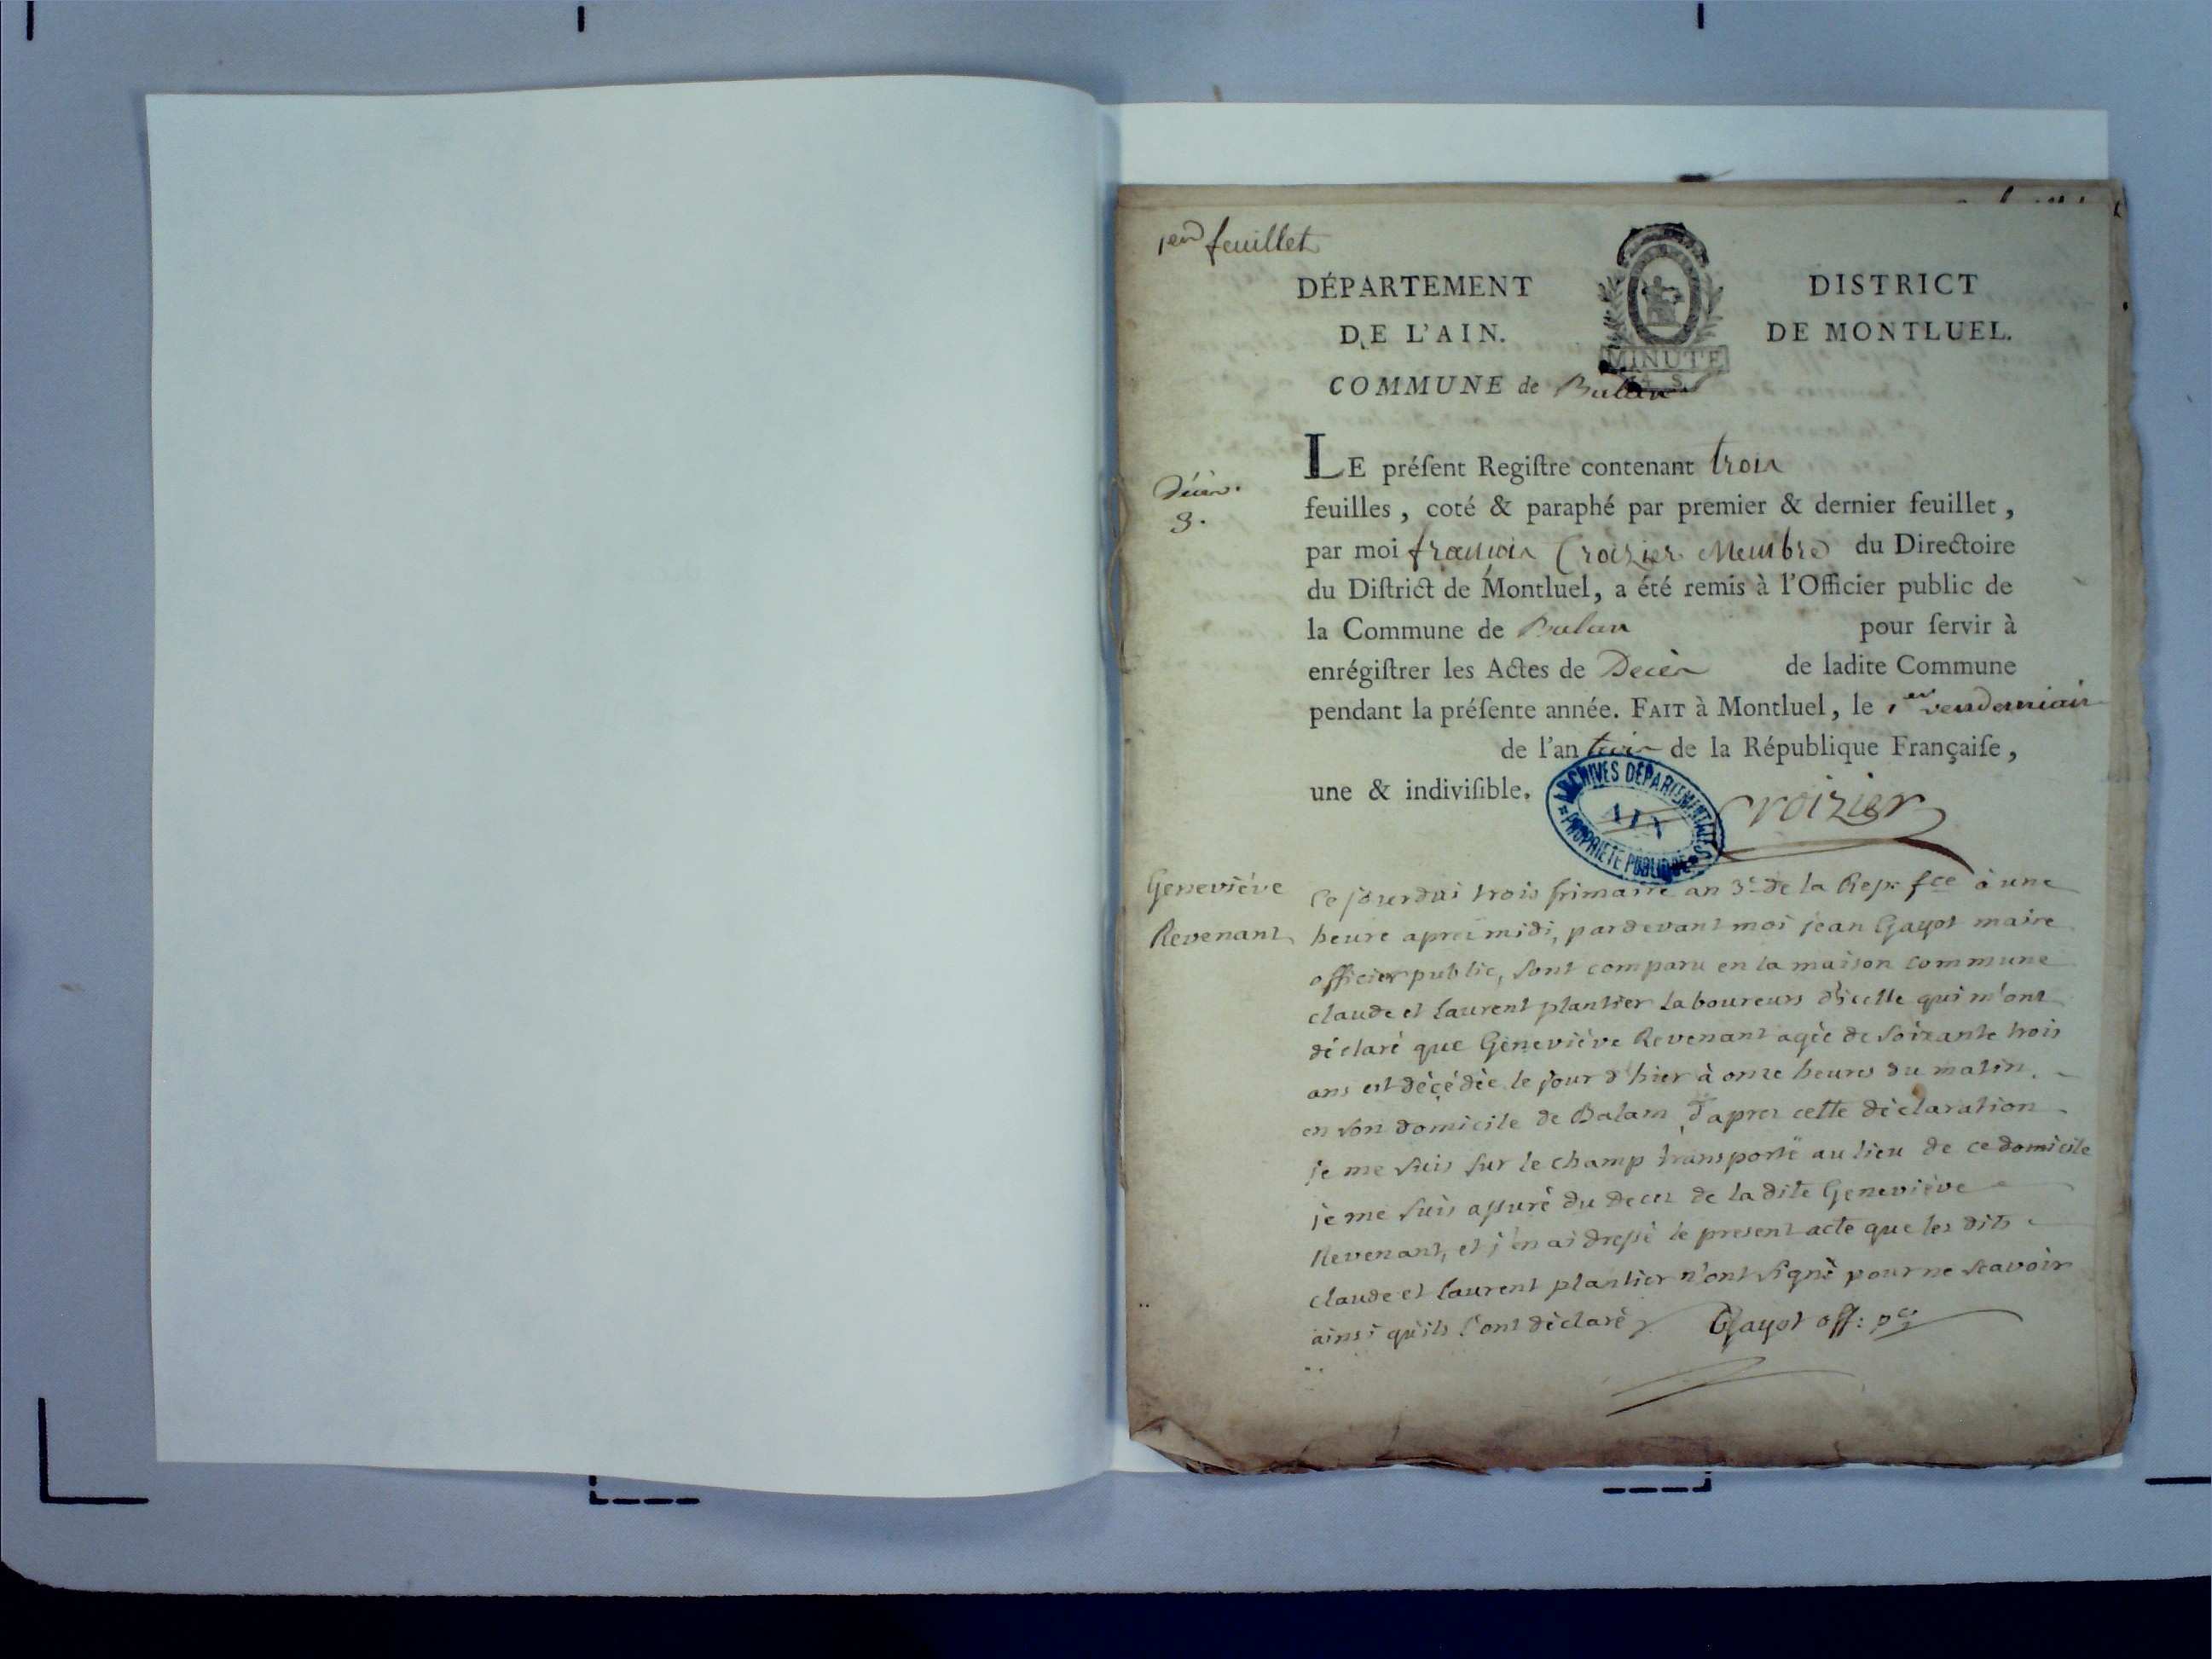 1er feuillet
DÉPARTEMENT
DE L'AIN.
MINUTE
4 S
DISTRICT
DE MONTLUEL.
COMMUNE de Balan
Décès.
3.
LE préſent Regiſtre contenant trois
feuilles, coté & paraphé par premier & dernier feuillet,
par moi françois Croizier Membre du Directoire
du Diſtrict de Montluel, a été remis à l'Officier public de
la Commune de Balan pour ſervir à
enrégiſtrer les Actes de Decès de ladite Commune
pendant la préſente année. FAIT à Montluel, le 1er vendemiair
de l'an trois de la République Françaiſe,
une & indiviſible.
Croizier
ARCHIVES DEPARTEMENTALES
AIN
PROPRIETE PUBLIQUE
Geneviève
Revenant
Ce jourdui trois frimaire an 3e de la Rep. fce à une
heure aprèz midi, pardevant moi jean Gayot maire
officier public, sont comparu en la maison commune
claude et Laurent plantier Laboureurs d'icelle qui m'ont
déclaré que Geneviève Revenant agée de soixante trois
ans est décédée le jour d'hier à onze heures du matin.
en son domicile de Balam d'aprez cette déclaration
je me suis sur le champ transporté au lieu de ce domicile
je me suis assuré du decez de la dite Geneviève
Revenant, et j'en ai dressé le present acte que les dits
claude et laurent plantier n'ont signé pour ne scavoir
ainsi qu'ils l'ont déclaré Gayot off: pc